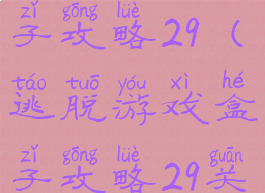 zǐ gōng lüè
子攻略29（
táo tuō yóu xì hé
逃脱游戏盒
zǐ gōng lüè guān
子攻略29关